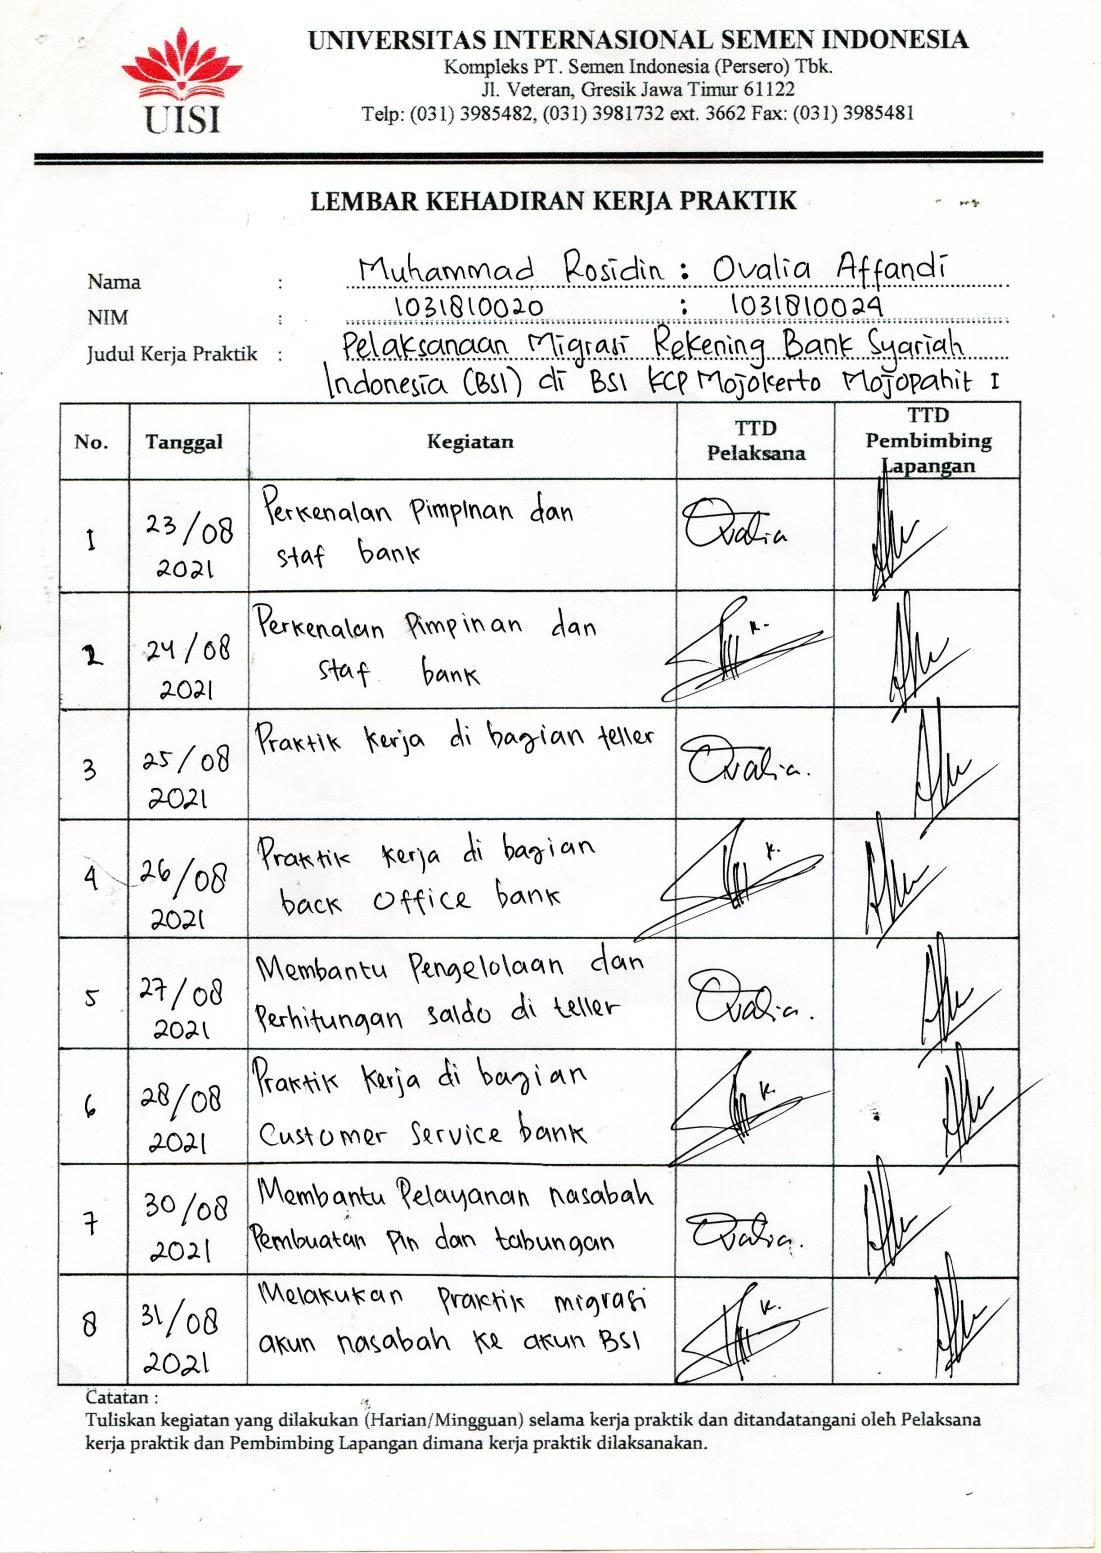 UISI
UNIVERSITAS INTERNASIONAL SEMEN INDONESIA
Kompleks PT. Semen Indonesia (Persero) Tbk.
Jl. Veteran, Gresik Jawa Timur 61122
Telp: (031) 3985482, (031) 3981732 ext. 3662 Fax: (031) 3985481
LEMBAR KEHADIRAN KERJA PRAKTIK
Nama : Muhammad Rosidin : Ovalia Affandi
NIM : 1031810020 : 1031810024
Judul Kerja Praktik : Pelaksanaan Migrasi Rekening Bank Syariah
Indonesia (BSI) di BSI KCP Mojokerto Mojopahit I
No. Tanggal Kegiatan TTD Pelaksana TTD Pembimbing Lapangan
1 23/08 2021 Perkenalan Pimpinan dan
staf bank Ovalia
2 24/08 2021 Perkenalan Pimpinan dan
staf bank
3 25/08 2021 Praktik kerja di bagian teller Ovalia.
4 26/08 2021 Praktik kerja di bagian
back office bank
5 27/08 2021 Membantu Pengelolaan dan
Perhitungan saldo di teller Ovalia.
6 28/08 2021 Praktik kerja di bagian
Customer Service bank
7 30/08 2021 Membantu Pelayanan nasabah
Pembuatan Pin dan tabungan Ovalia.
8 31/08 2021 Melakukan Praktik migrasi
akun nasabah ke akun BSI
Catatan :
Tuliskan kegiatan yang dilakukan (Harian/Mingguan) selama kerja praktik dan ditandatangani oleh Pelaksana
kerja praktik dan Pembimbing Lapangan dimana kerja praktik dilaksanakan.